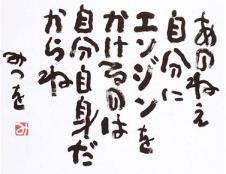 あのねえ
自分に
エンジンを
かけるのは
自分自身だ
からね
みつを
み